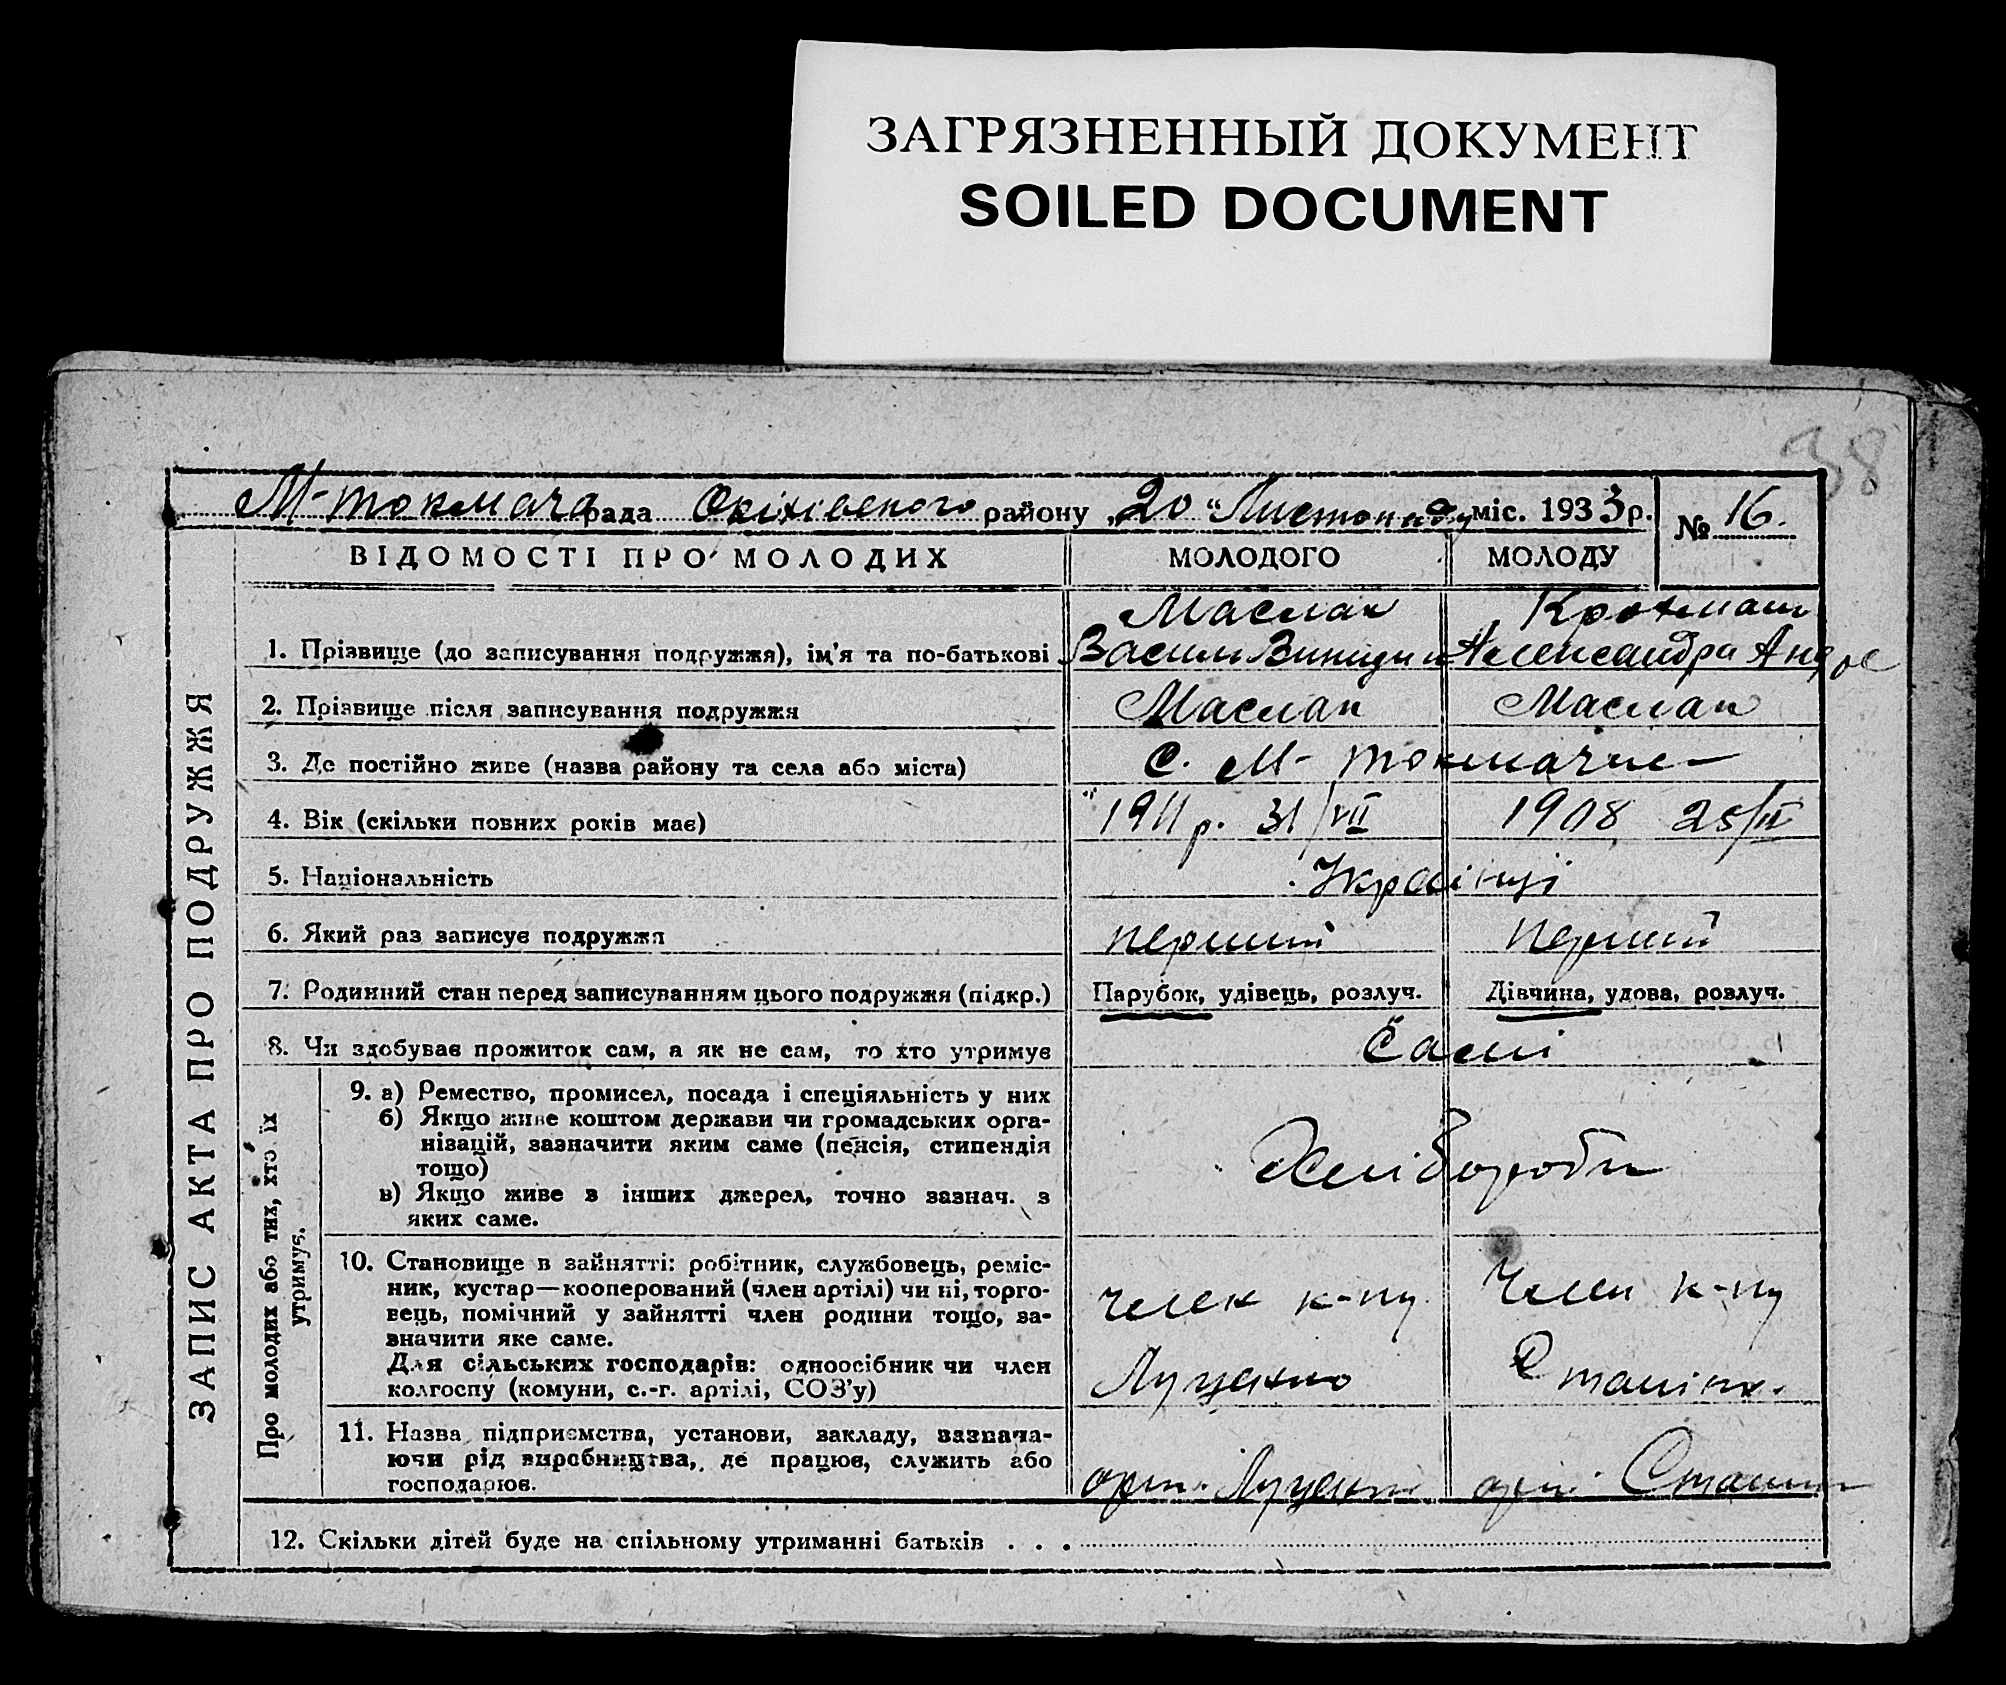 ЗАГРЯЗНЕННЫЙ ДОКУМЕНТ
SOILED DOCUMENT
38
М-Токмача рада Оріхівського району „20“ Листопаду міс. 1933 р. № 16.
ВІДОМОСТІ ПРО МОЛОДИХ МОЛОДОГО МОЛОДУ
ЗАПИС АКТА ПРО ПОДРУЖЖЯ
Маслак
1. Прізвище (до записування подружжя), ім’я та по-батькові Василь Александра Андре
2. Прізвище після записування подружжя Маслак Маслак
3. Де постійно живе (назва району та села або міста) с. М- Токмачка
4. Вік (скільки повних років має) 1911 р. 31/VII 1908
5. Національність Українці
6. Який раз записує подружжя перший перший
7. Родинний стан перед записуванням цього подружжя (підкр.) Парубок, удівець, розлуч. Дівчина, удова, розлуч.
8. Чи здобуває прожиток сам, а як не сам, то хто утримує Самі
Про молодих або тих, хто їх утримує.
9. а) Ремество, промисел, посада і спеціяльність у них
б) Якщо живе коштом держави чи громадських орга-
нізацій, зазначити яким саме (пенсія, стипендія
тощо)
в) Якщо живе з інших джерел, точно зазнач. з
яких саме.
Хлібороби
10. Становище в зайнятті: робітник, службовець, реміс-
ник, кустар—кооперований (член артілі) чи ні, торго-
вець, помічний у зайнятті член родини тощо, за-
значити яке саме.
Для сільських господарів: одноосібник чи член
колгоспу (комуни, с.-г. артілі, СОЗ’у)
член к-пу член к-пу
Луценко Сталіна.
11. Назва підприємства, установи, закладу, зазнача-
ючи рід виробництва, де працює, служить або
господарює.
арт. Луценко арт. Сталіна
12. Скільки дітей буде на спільному утриманні батьків . . .